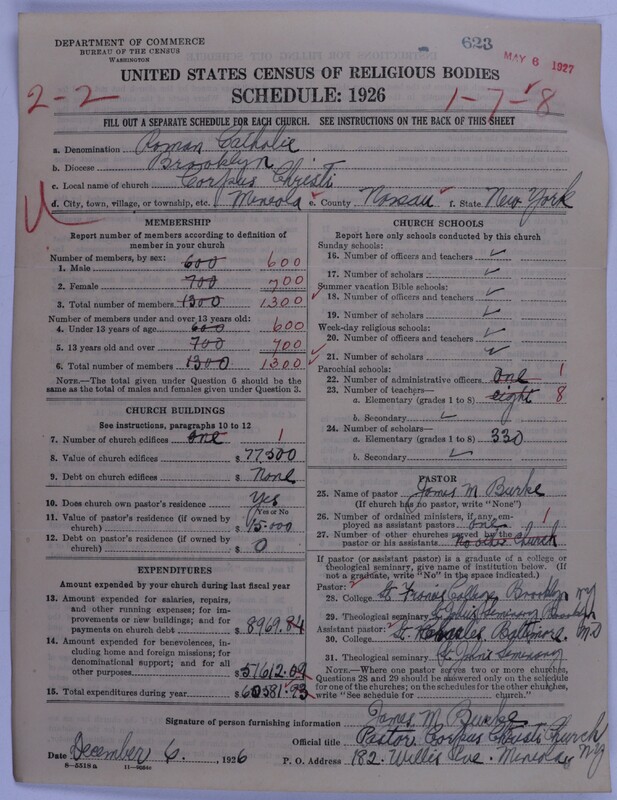 DEPARTMENT OF COMMERCE
BUREAU OF THE CENSUS
WASHINGTON
623
MAY 6 1927
UNITED STATES CENSUS OF RELIGIOUS BODIES
2-2
SCHEDULE: 1926
1-7-8
FILL OUT A SEPARATE SCHEDULE FOR EACH CHURCH. SEE INSTRUCTIONS ON THE BACK OF THIS SHEET
a. Denomination Roman Catholic
b. Diocese Brooklyn
c. Local name of church Corpus Christi
d. City, town, village, or township, etc. Mineola e. County Nassau f. State New York
MEMBERSHIP
Report number of members according to definition of
member in your church
Number of members, by sex:
1. Male 600 600
2. Female 700 700
3. Total number of members 1300 1300
Number of members under and over 13 years old:
4. Under 13 years of age 600 600
5. 13 years old and over 700 700
6. Total number of members 1300 1300
NOTE.—The total given under Question 6 should be
the same as total of males and females given under Question 3.
CHURCH BUILDINGS
See instructions, paragraphs 10 to 12
7. Number of church edifices one 1
8. Value of church edifices $ 77,500
9. Debt on church edifices $ None
10. Does church own pastor's residence Yes
Yes or No
11. Value of pastor's residence (if owned by
church) $ 15.000
12. Debt on pastor's residence (if owned by
church) $ 0
EXPENDITURES
Amount expended by your church during last fiscal year
13. Amount expended for salaries, repairs,
and other running expenses; for im-
provements or new buildings; and for
payments on church debt $ 8969.84
14. Amount expended for benevolences, in-
cluding home and foreign missions; for
denominational support; and for all
other purposes $ 51612.09
15. Total expenditures during year $ 60581.93
CHURCH SCHOOLS
Report here only schools conducted by this church
Sunday schools:
16. Number of officers and teachers
17. Number of scholars
Summer vacation Bible schools:
18. Number of officers and teachers
19. Number of scholars
Week-day religious schools:
20. Number of officers and teachers
21. Number of scholars
Parochial schools:
22. Number of administrative officers one 1
23. Number of teachers—
a. Elementary (grades 1 to 8) eight 8
b. Secondary
24. Number of scholars—
a. Elementary (grades 1 to 8) 330
b. Secondary
PASTOR
25. Name of pastor James M Burke
(If church has no pastor, write "None")
26. Number of ordained ministers, if any, em-
ployed as assistant pastors one 1
27. Number of other churches served by the
pastor or his assistants Church
If pastor (or assistant pastor) is a graduate of a college or
theological seminary, give name of institution below. (If
not a graduate, write "No" in the space indicated.)
Pastor:
28. College St. Francis College Brooklyn NY
29. Theological seminary St. Johns Seminary Brooklyn
Assistant pastor:
30. College St. Baltimore MD
31. Theological seminary St. Johns Seminary
NOTE.—Where one pastor serves two or more churches,
Questions 28 and 29 should be answered only on the schedule
for one of the churches; on the schedules for the other churches,
write "See schedule for church."
Signature of person furnishing information James M. Burke
Official title Pastor Corpus Christi Church
Date December 6, 1926 P. O. Address 182 Willis Ave. Mineola, NY